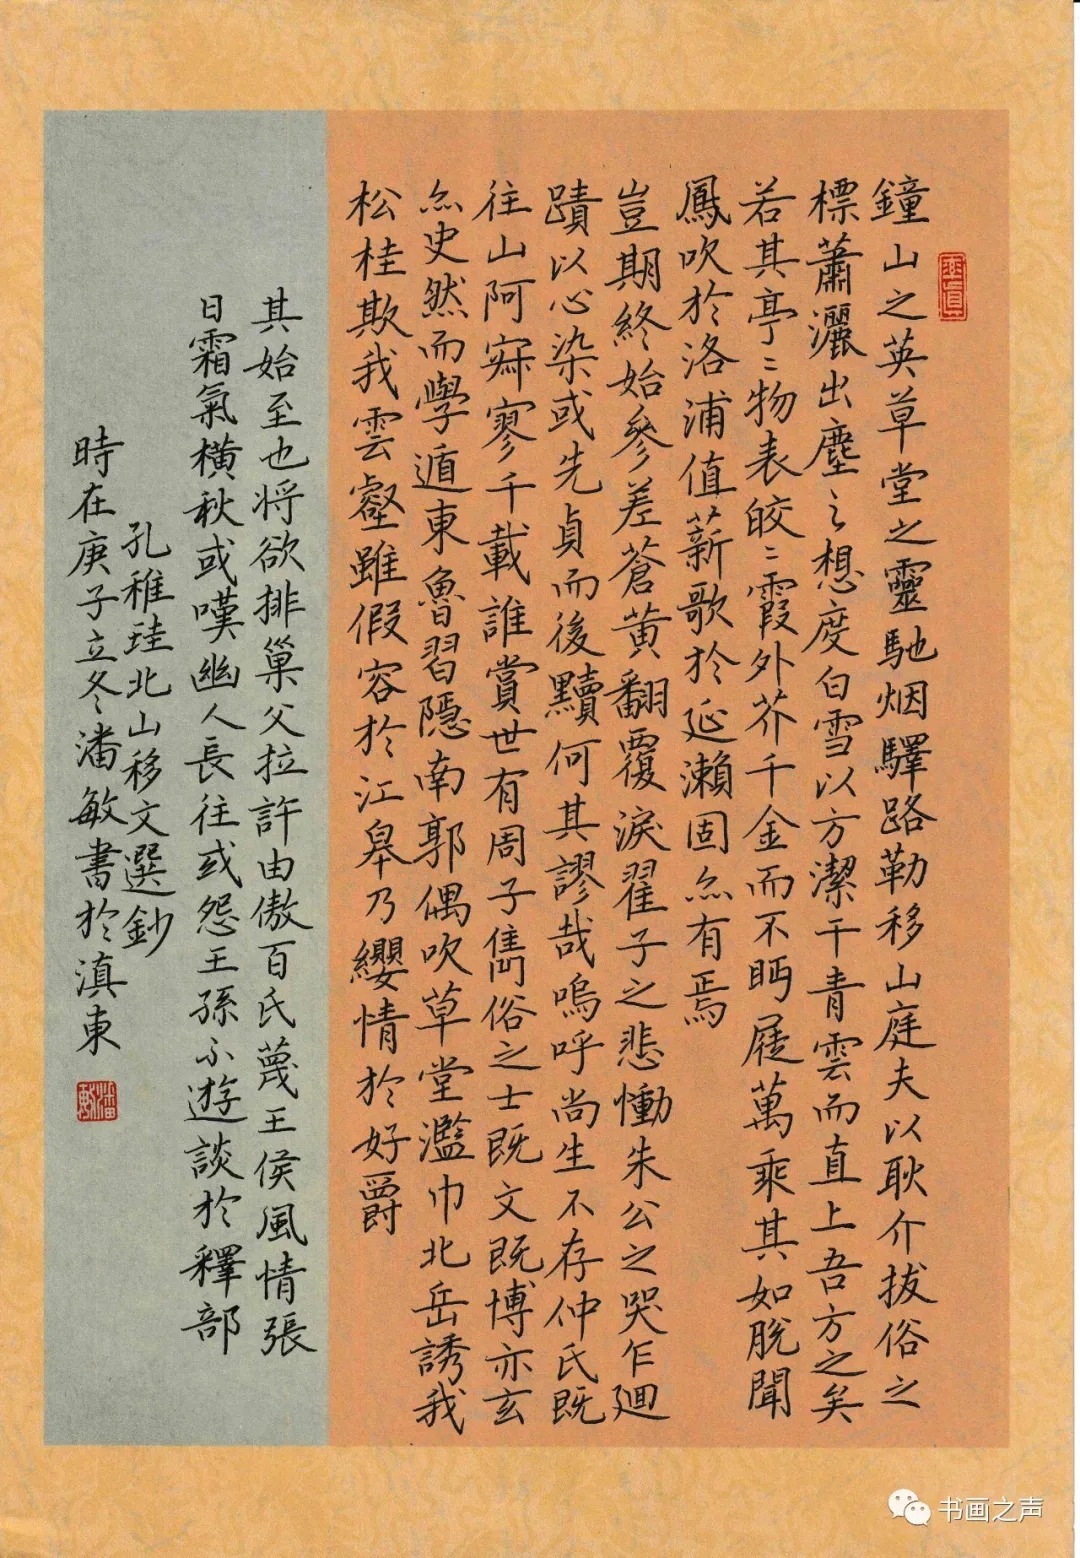 鐘山之英草堂之靈馳烟驛路勒移山庭夫以耿介拔俗之
標蕭灑出塵之想度白雪以方潔干青雲而直上吾方之矣
若其亭〻物表皎〻霞外芥千金而不眄屣萬乘其如脫聞
鳳吹於洛浦值薪歌於延瀨固亦有焉
豈期終始參差蒼黃翻覆淚翟子之悲慟朱公之哭乍迴
蹟以心染或先貞而後黷何其謬哉嗚呼尚生不存仲氏既
往山阿寂寥千載誰賞世有周子雋俗之士既文既博亦玄
亦史然而學遁東魯習隱南郭偶吹草堂濫巾北岳誘我
松桂欺我雲壑雖假容於江皋乃纓情於好爵
其始至也將欲排巢父拉許由傲百氏蔑王侯風情張
日霜氣橫秋或嘆幽人長往或怨王孫不遊談於釋部
孔稚珪北山移文選鈔
時在庚子立冬潘敏書於滇東
潘敏
书画之声